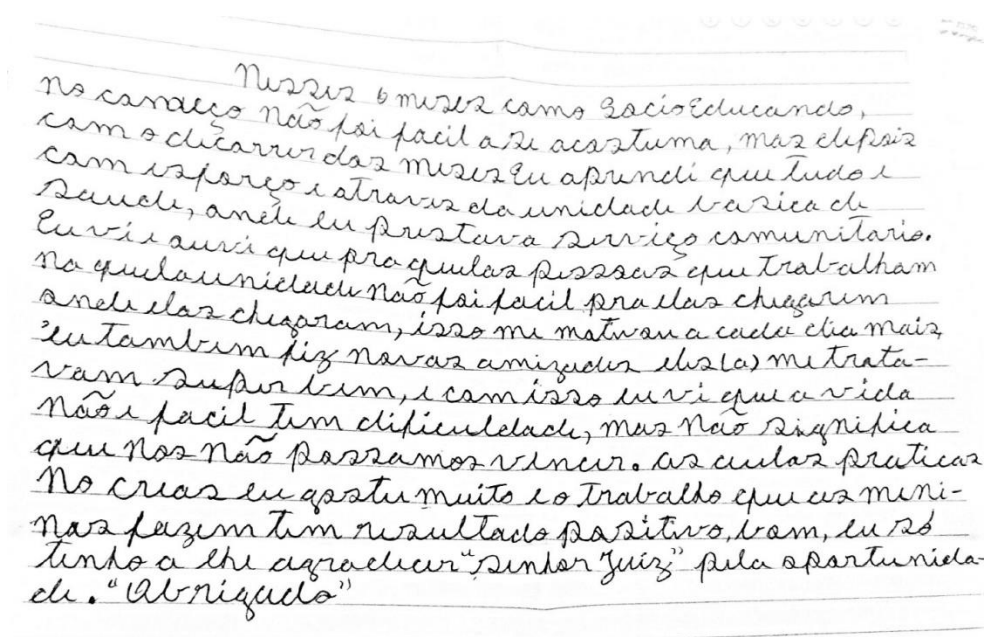 Nesses 6 meses como SocioEducando,
no começo não foi facil a se acostuma, mas depois
com o dicorrer dos meses Eu aprendi que tudo e
com esforço e atraves da unidade basica de
saude, onde eu prestava serviço comunitario.
Eu vi e ouvi que pra quelas pessoas que trabalham
na quela unidade não foi facil pra elas chegarem
onde elas chegaram, isso me motivou a cada dia mais,
eu tambem fiz novas amizades eles(a) me trata-
vam super bem, e com isso eu vi que a vida
não e facil tem dificuldade, mas não significa
que nos não possamos vencer. as aulas praticas
No creas eu gostei muito e o trabalho que as meni-
nas fazem tem resultado positivo, bom, eu só
tenho a lhe agradecer "senhor Juiz" pela oportunida-
de. "Obrigado"